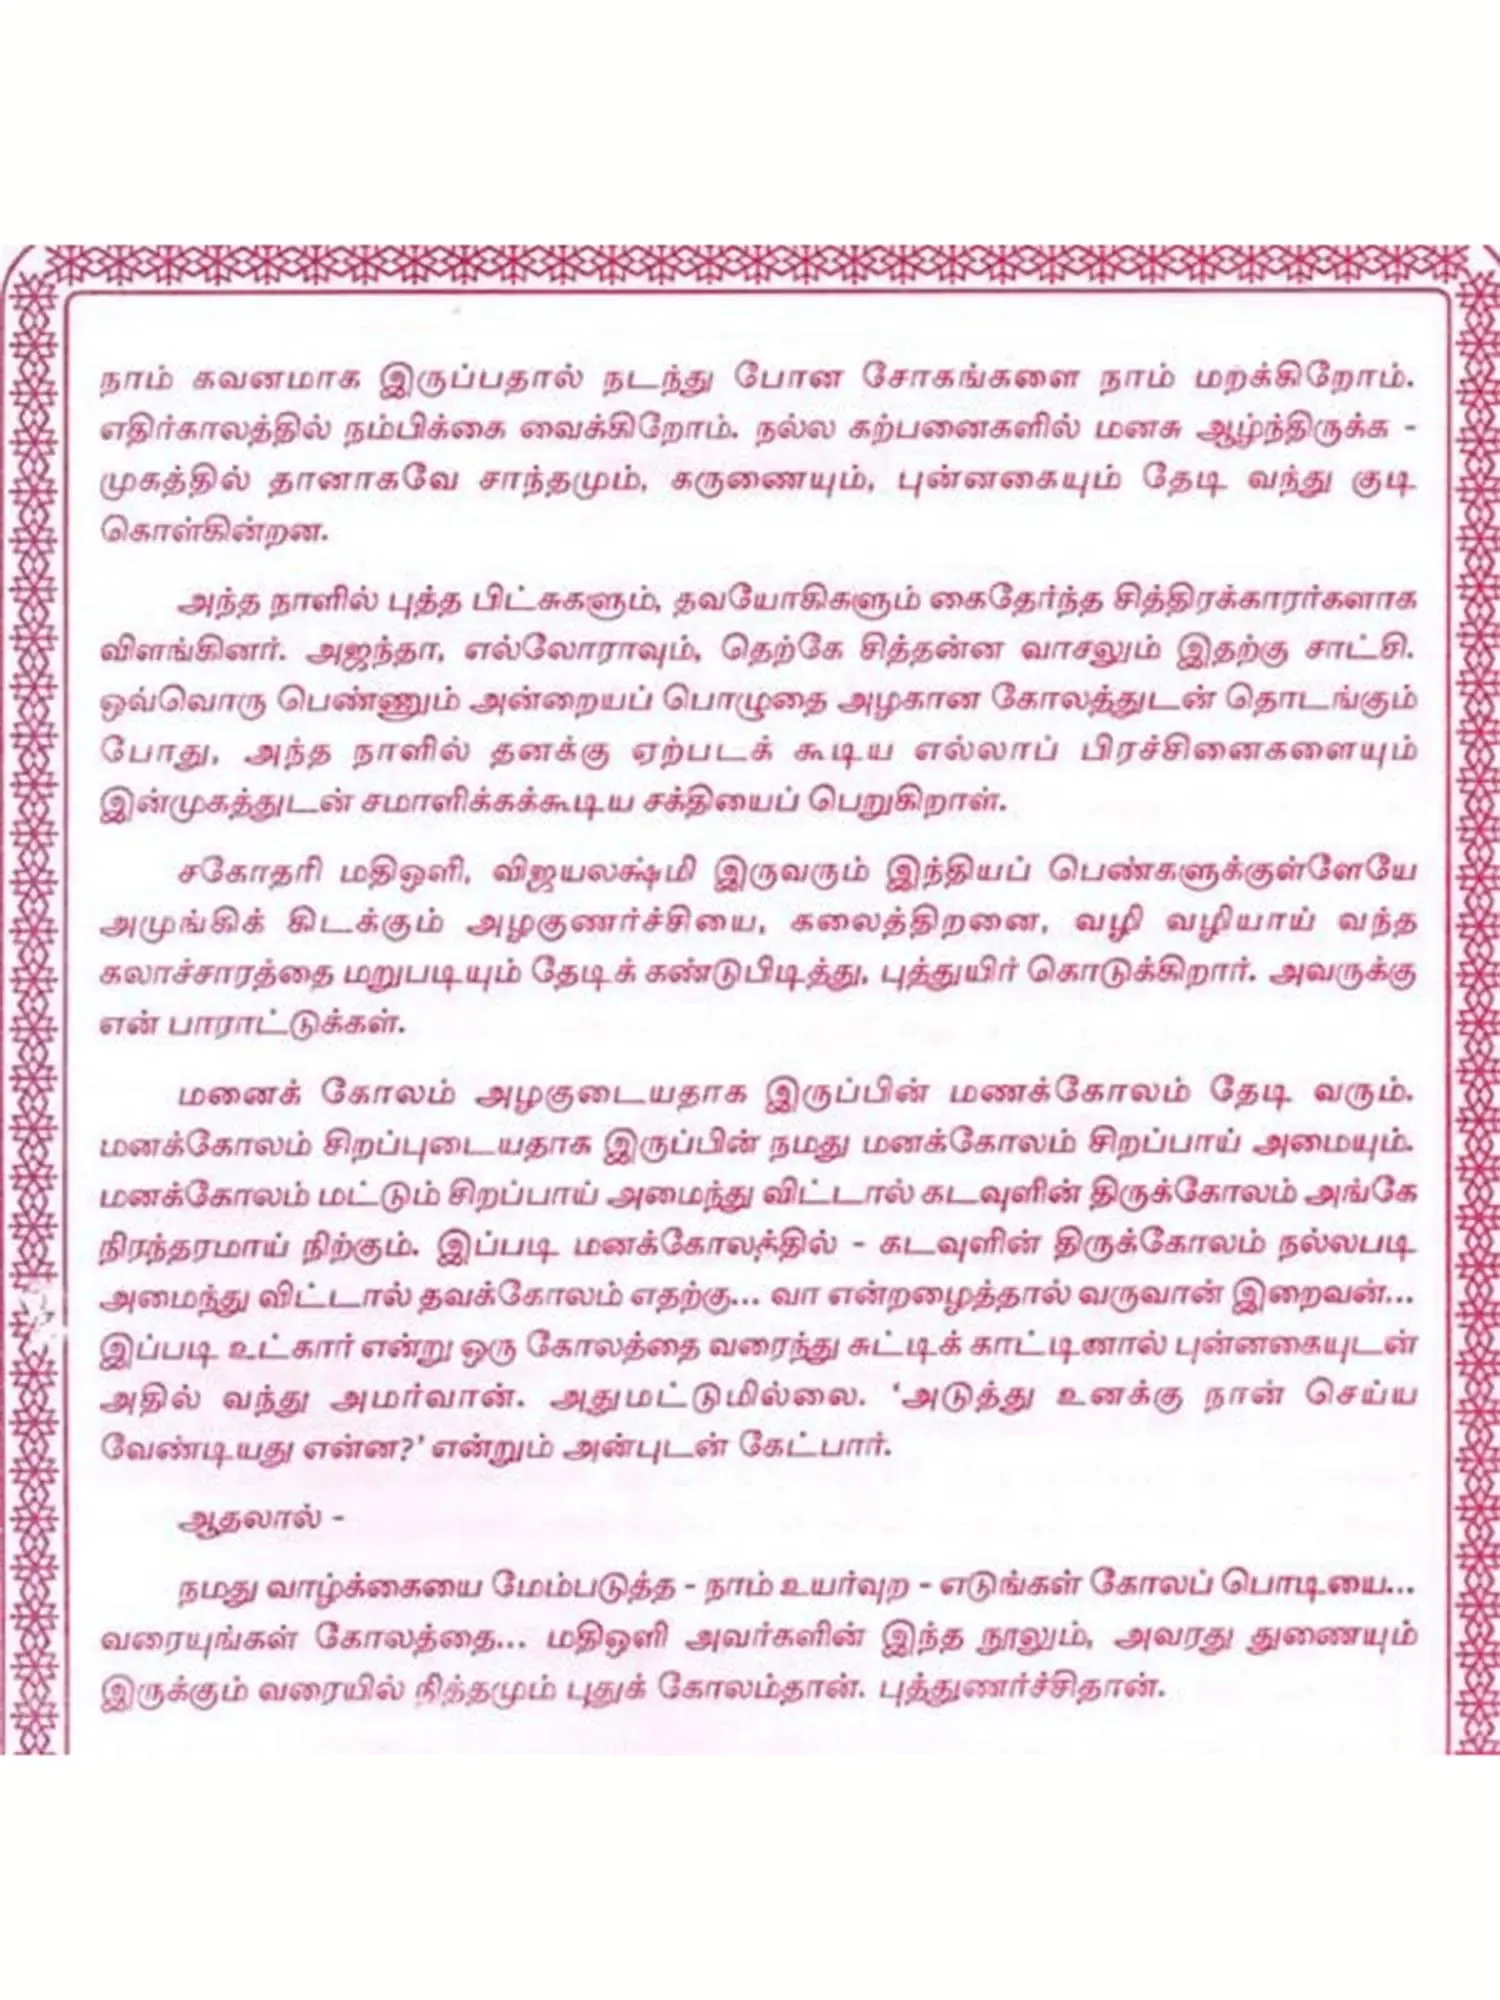 நாம் கவனமாக இருப்பதால் நடந்து போன சோகங்களை நாம் மறக்கிறோம்.
எதிர்காலத்தில் நம்பிக்கை வைக்கிறோம். நல்ல கற்பனைகளில் மனசு ஆழ்ந்திருக்க -
முகத்தில் தானாகவே சாந்தமும், கருணையும், புன்னகையும் தேடி வந்து குடி
கொள்கின்றன.
அந்த நாளில் புத்த பிட்சுகளும், தவயோகிகளும் கைதேர்ந்த சித்திரக்காரர்களாக
விளங்கினர். அஜந்தா, எல்லோராவும், தெற்கே சித்தன்ன வாசலும் இதற்கு சாட்சி.
ஒவ்வொரு பெண்ணும் அன்றையப் பொழுதை அழகான கோலத்துடன் தொடங்கும்
போது, அந்த நாளில் தனக்கு ஏற்படக் கூடிய எல்லாப் பிரச்சினைகளையும்
இன்முகத்துடன் சமாளிக்கக்கூடிய சக்தியைப் பெறுகிறாள்.
சகோதரி மதிஒளி, விஜயலக்ஷ்மி இருவரும் இந்தியப் பெண்களுக்குள்ளேயே
அமுங்கிக் கிடக்கும் அழகுணர்ச்சியை, கலைத்திறனை, வழி வழியாய் வந்த
கலாச்சாரத்தை மறுபடியும் தேடிக் கண்டுபிடித்து, புத்துயிர் கொடுக்கிறார். அவருக்கு
என் பாராட்டுக்கள்.
மனைக் கோலம் அழகுடையதாக இருப்பின் மணக்கோலம் தேடி வரும்.
மனக்கோலம் சிறப்புடையதாக இருப்பின் நமது மனக்கோலம் சிறப்பாய் அமையும்.
மனக்கோலம் மட்டும் சிறப்பாய் அமைந்து விட்டால் கடவுளின் திருக்கோலம் அங்கே
நிரந்தரமாய் நிற்கும். இப்படி மனக்கோலத்தில் - கடவுளின் திருக்கோலம் நல்லபடி
அமைந்து விட்டால் தவக்கோலம் எதற்கு... வா என்றழைத்தால் வருவான் இறைவன்...
இப்படி உட்கார் என்று ஒரு கோலத்தை வரைந்து சுட்டிக் காட்டினால் புன்னகையுடன்
அதில் வந்து அமர்வான். அதுமட்டுமில்லை. 'அடுத்து உனக்கு நான் செய்ய
வேண்டியது என்ன?' என்றும் அன்புடன் கேட்பார்.
ஆதலால் -
நமது வாழ்க்கையை மேம்படுத்த - நாம் உயர்வுற - எடுங்கள் கோலப் பொடியை...
வரையுங்கள் கோலத்தை... மதிஒளி அவர்களின் இந்த நூலும், அவரது துணையும்
இருக்கும் வரையில் நித்தமும் புதுக் கோலம்தான். புத்துணர்ச்சிதான்.